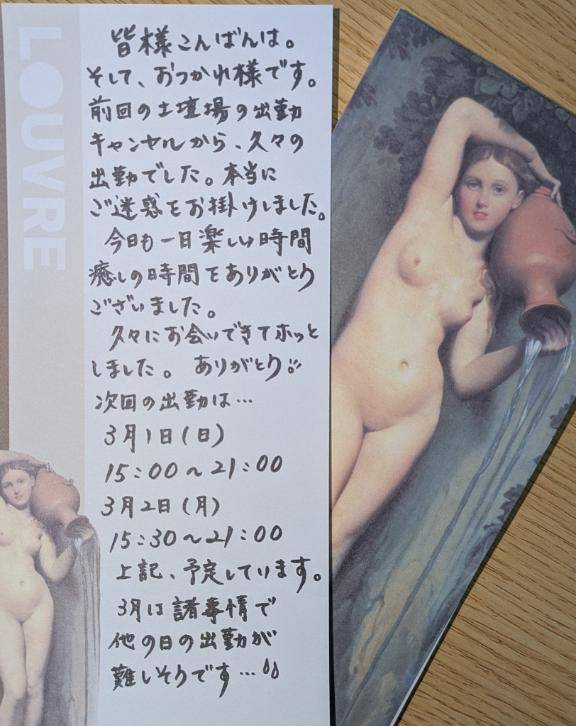 LOUVRE
皆様こんばんは。
そして、おつかれ様です。
前回の土壇場の出勤
キャンセルから、久々の
出勤でした。本当に
ご迷惑をお掛けしました。
今日も一日楽しい時間
癒しの時間をありがとう
ございました。
久々にお会いできてホッと
しました。ありがとう
次回の出勤は…
3月1日(日)
15:00～21:00
3月2日(月)
15:30～21:00
上記、予定しています。
3月は諸事情で
他の日の出勤が
難しそうです…